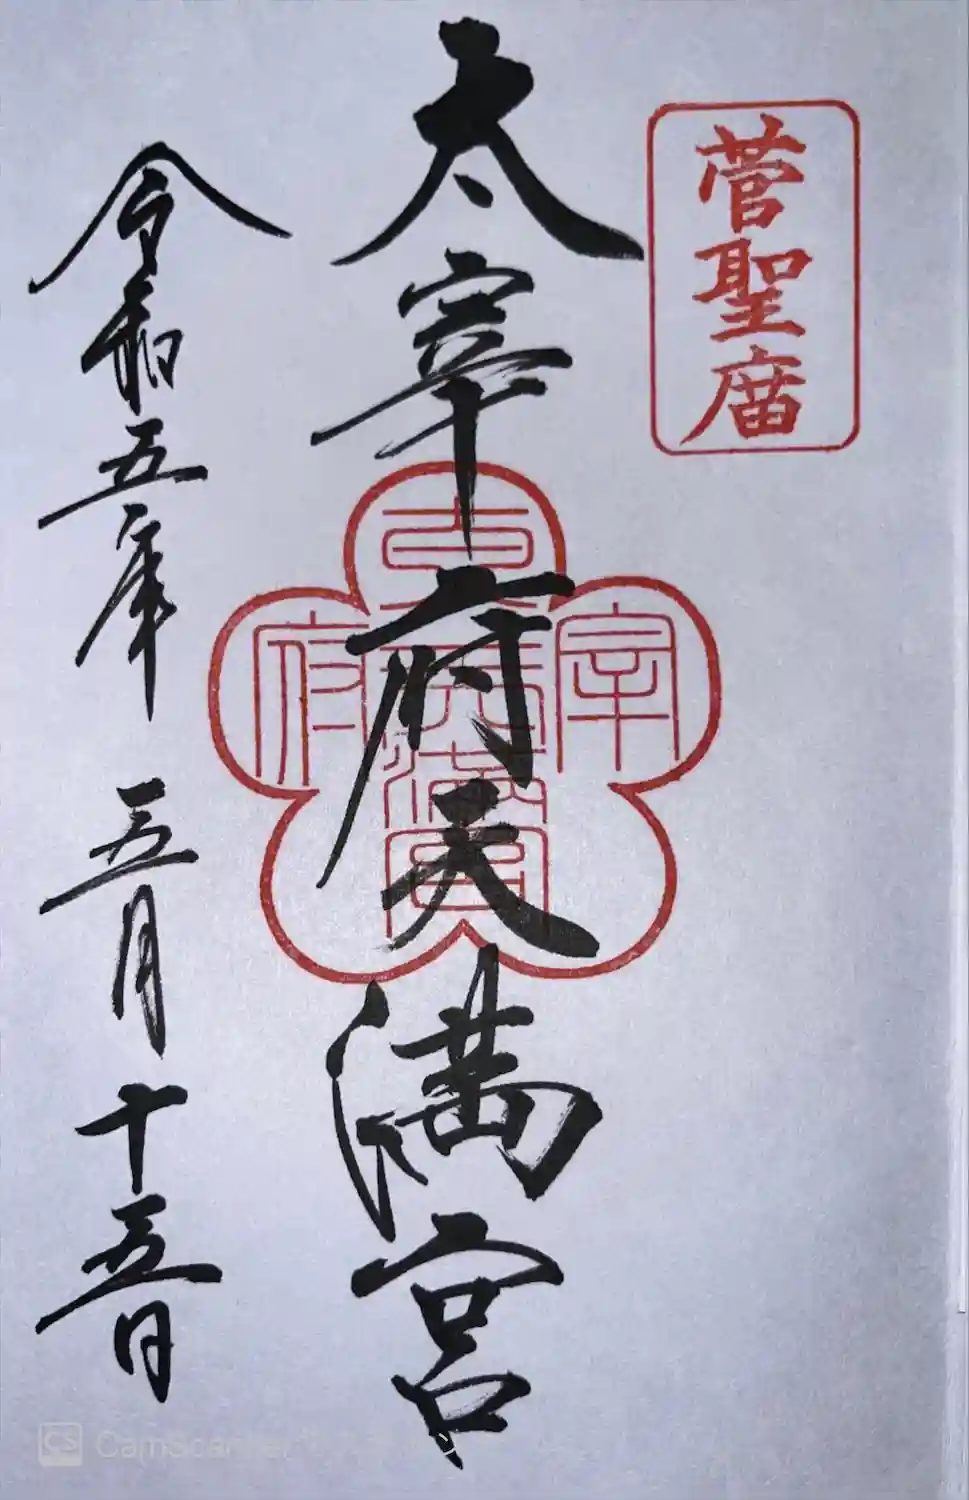 菅聖庿
太宰府天満宮
太
宰
府
天満宮
令和五年 五月十五日
CS CamScanner